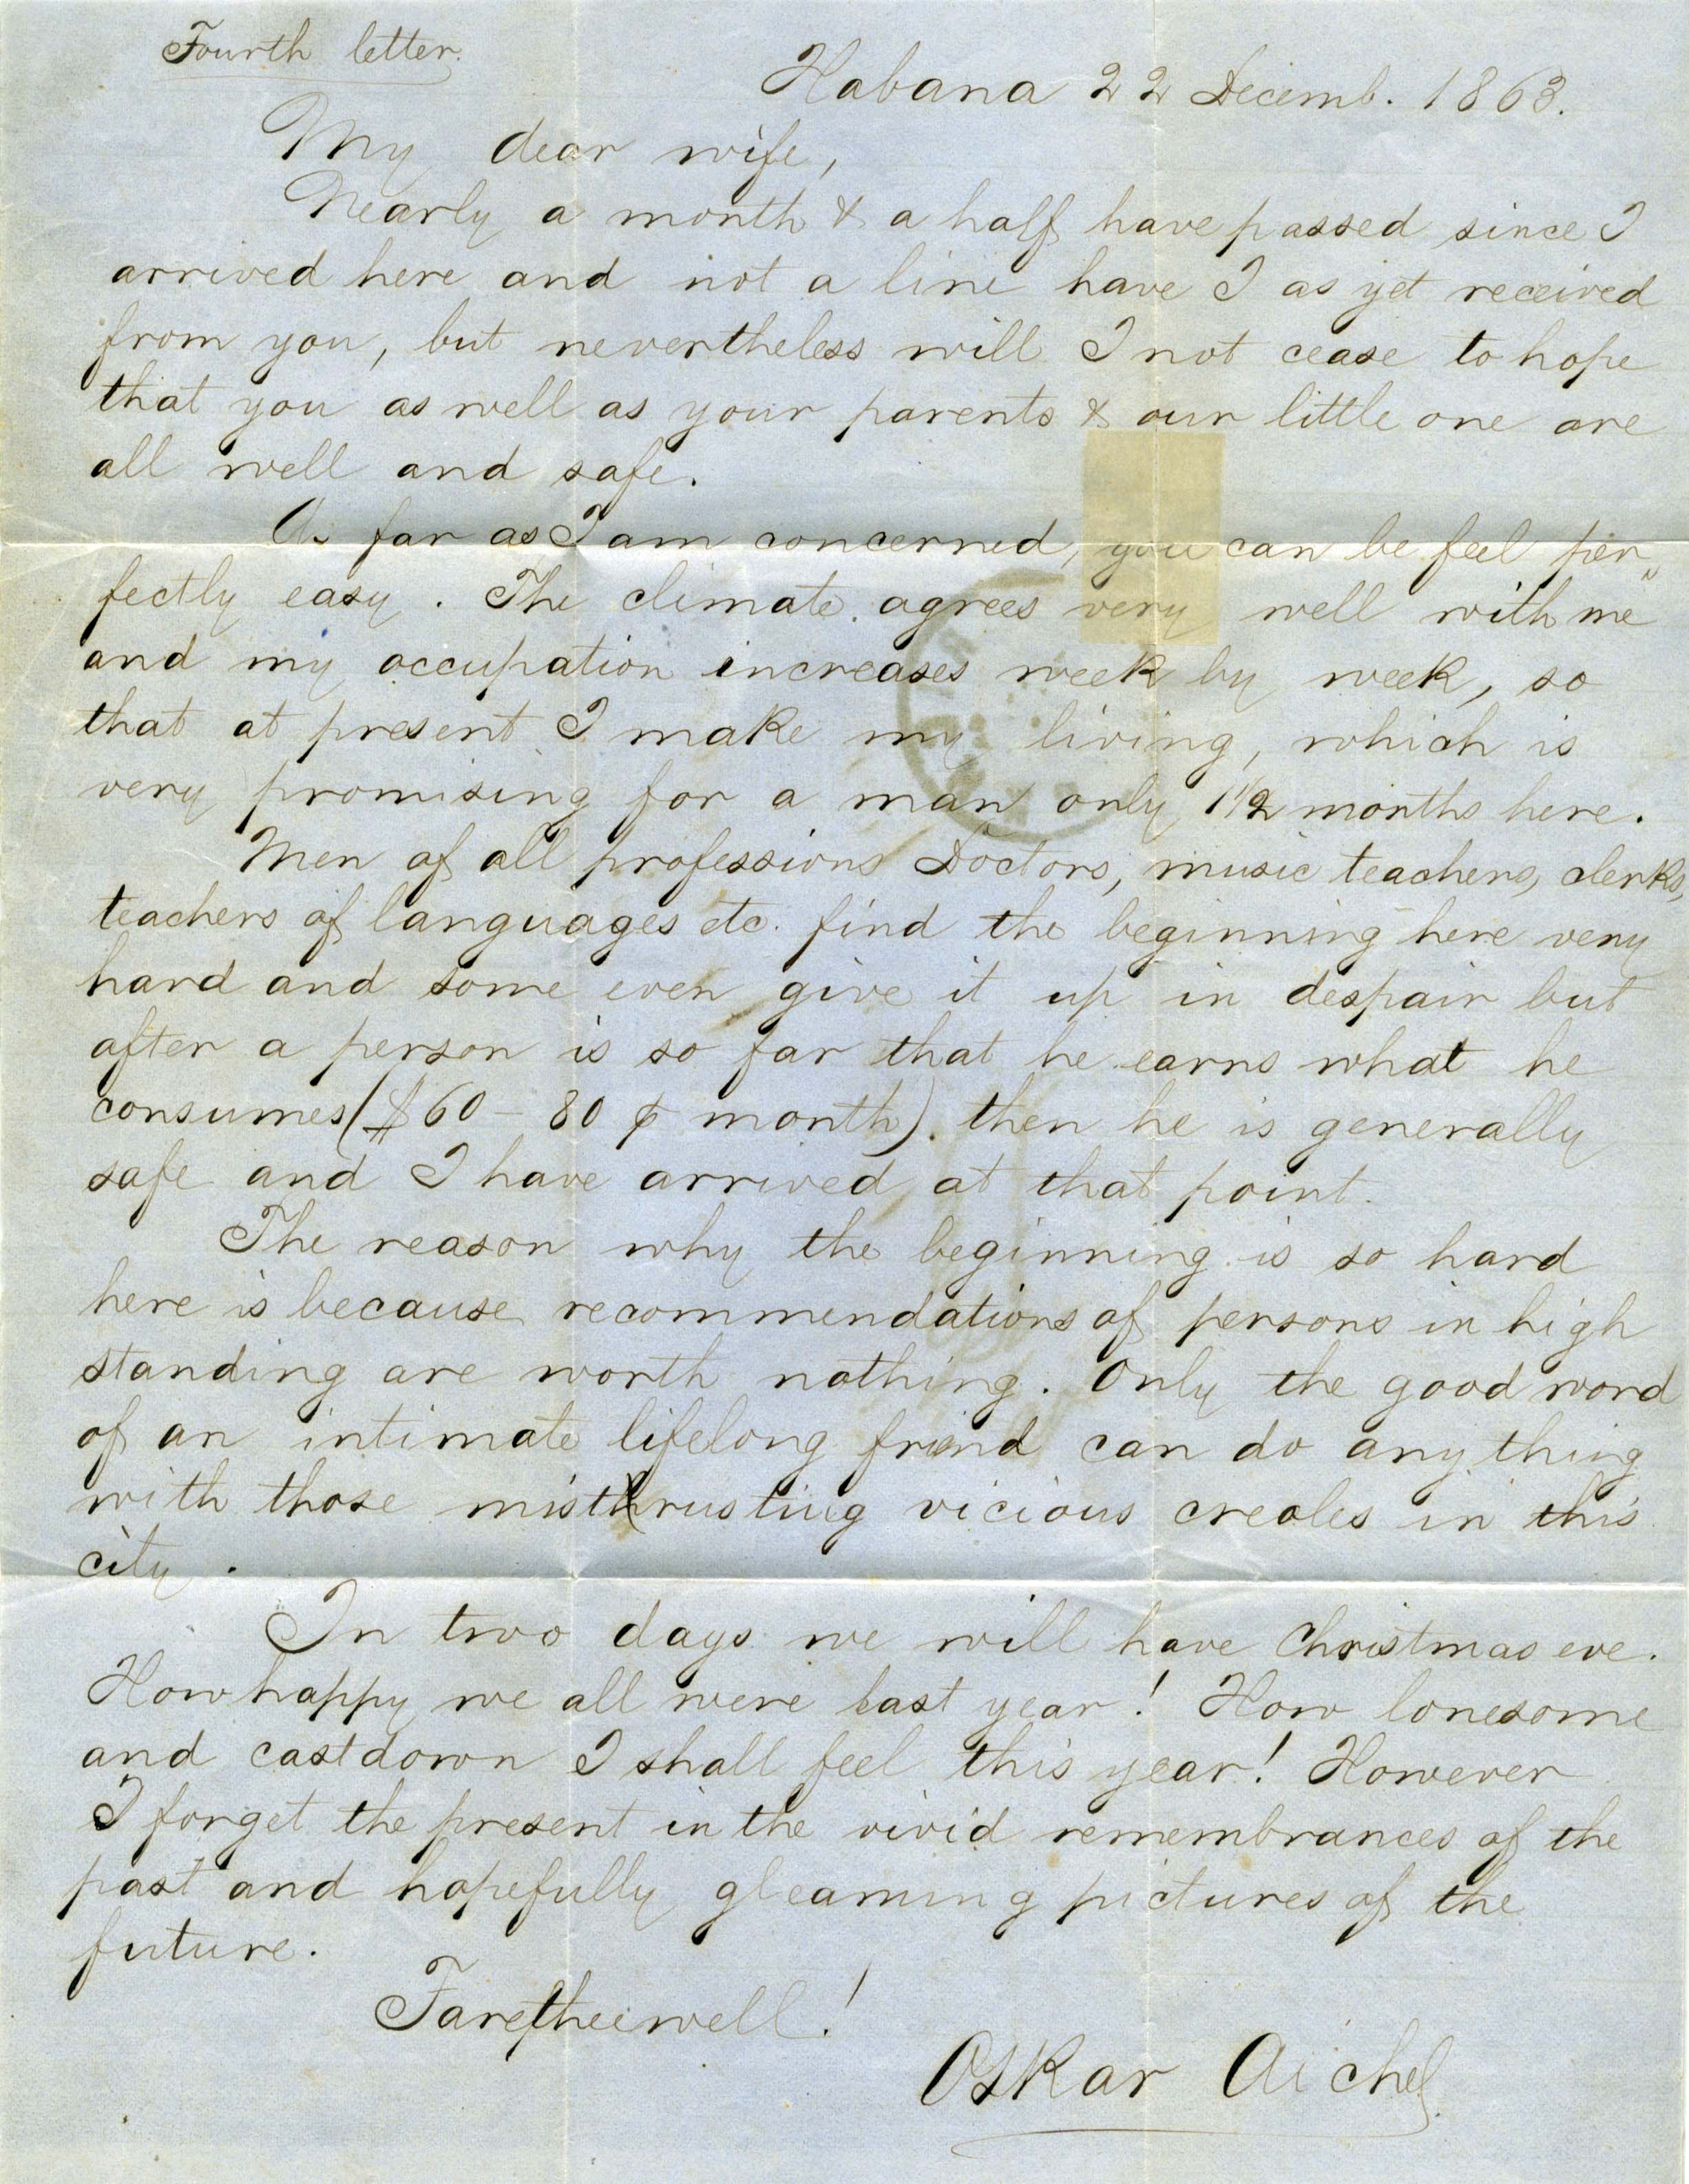 Fourth letter.
Habana 22 Decemb. 1863.
My dear wife,
Nearly a month & a half have passed since I
arrived here and not a line have I as yet received
from you, but nevertheless will I not cease to hope
that you as well as your parents & our little one are
all well and safe.
As far as I am concerned, you can be feel per„
fectly easy. The climate agrees very well with me
and my occupation increases week by week, so
that at present I make my living, which is
very promising for a man only 1½ months here.
Men of all professions Doctors, music teachers, clerks,
teachers of languages etc. find the beginning here very
hard and some even give it up in despair but
after a person is so far that he earns what he
consumes ($60 - 80 ⅌ month). then he is generally
safe and I have arrived at that point.
The reason why the beginning is so hard
here is because recommendations of persons in high
standing are worth nothing. Only the good word
of an intimate lifelong friend can do any thing
with those mistrusting vicious creoles in this
city.
In two days we will have Christmas eve.
How happy we all were last year! How lonesome
and castdown I shall feel this year! However
I forget the present in the vivid remembrances of the
past and hopefully gleaming pictures of the
future.
Faretheewell!
Oskar Aichel